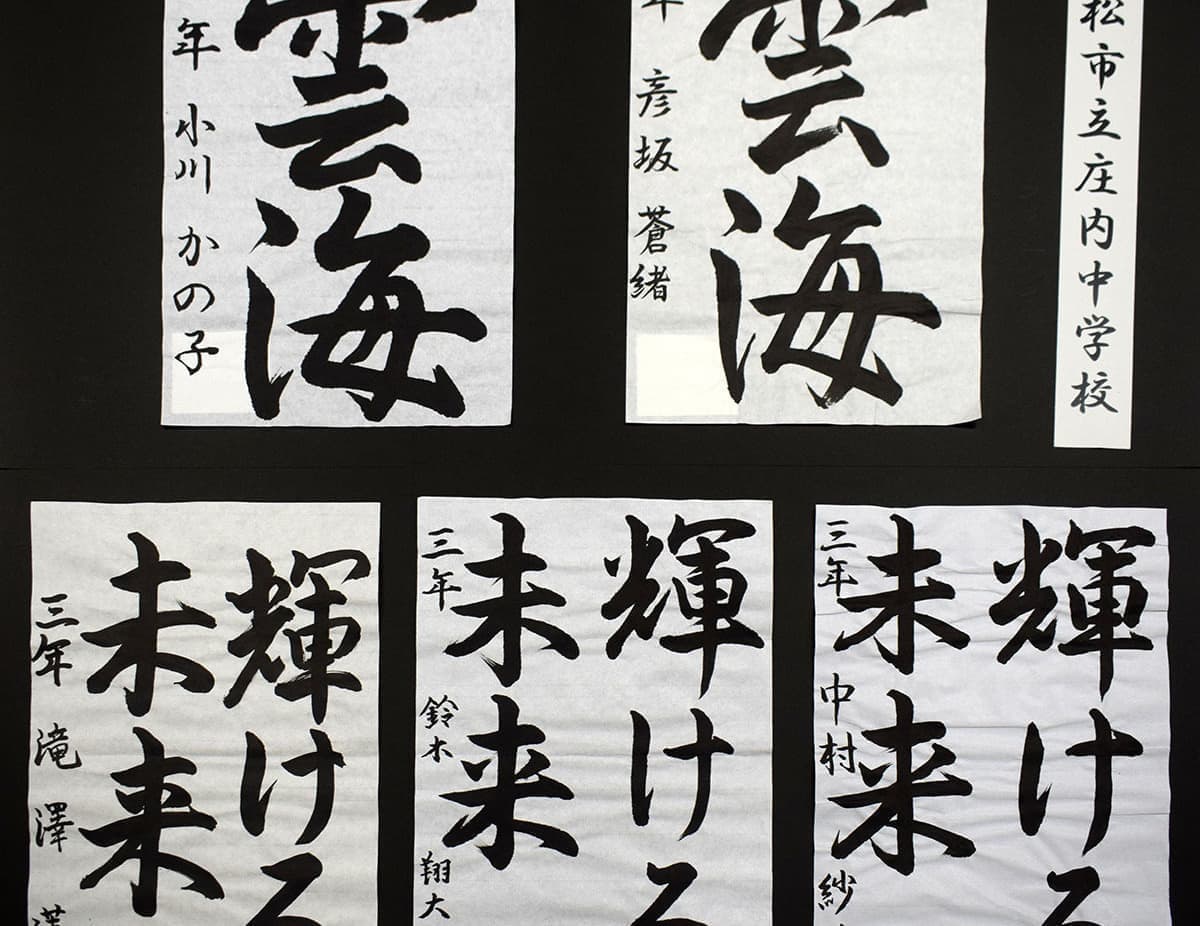 松市立庄内中学校
雲海
年 彦坂 蒼緒
雲海
年 小川 かの子
輝ける
未来
三年 中村 紗
輝ける
未来
三年 鈴木 翔大
輝ける
未来
三年 滝澤